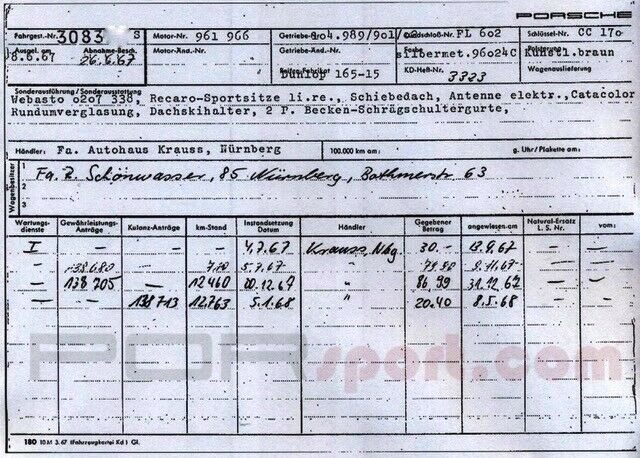 PORSCHE
Fahrgest.-Nr. 3083 S Motor-Nr. 961 966 Getriebe-Nr. 104.989/901/ Zündschloß-Nr. FL 602 Schlüssel-Nr. CC 170
Ausgel. am 8.6.67 Abnahme-Besch. 26.6.67 Motor-Änd.-Nr. Getriebe-Änd.-Nr. Farbe silbermet.96024C Polsterung Kunstl.braun
Reifen-Fabrikat Dunlop 165-15 KD-Heft-Nr. 3323 Wagenauslieferung
Sonderausführung / Sonderausstattung
Webasto o2o7 338, Recaro-Sportsitze li.re., Schiebedach, Antenne elektr.,Catacolor
Rundumverglasung, Dachskihalter, 2 P. Becken-Schrägschultergurte,
Händler: Fa. Autohaus Krauss, Nürnberg 100.000 km am: g. Uhr / Plakette am:
Wagenbesitzer
1 Fa. Z. Schönwasser, 85 Nürnberg, Bothmerstr 63
2
Wartungsdienste Gewährleistungs-Anträge Kulanz-Anträge km-Stand Instandsetzung Datum Händler Gegebener Betrag angewiesen am Natural-Ersatz L. S. Nr. vom:
I — — — 4.7.67 Krauss Nbg. 30.- 13.9.67 — —
— 138680 — 5.7.67 " 79.90 9.11.67 — —
— 138 705 — 12460 20.12.67 " 86,99 31.12.67 — —
— 138713 12.763 5.1.68 " 20.40 8.5.68 — —
PORsport.com
180 10 M 3. 67 (Fahrzeugkartei Kd ) Gl.